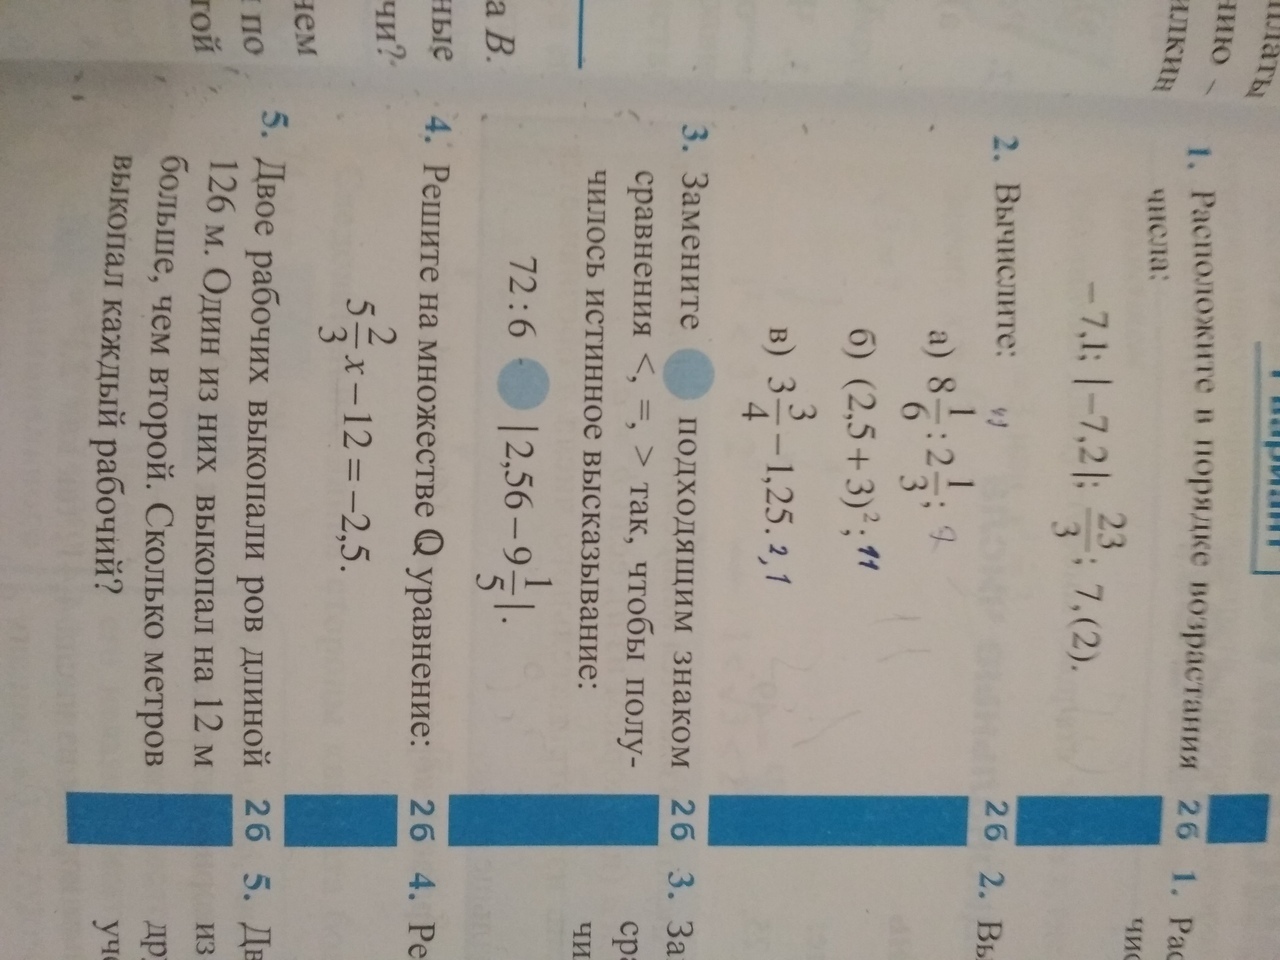 платы
нию –
илкин
а В.
ные
чи?
нем
по
той
1. Расположите в порядке возрастания
числа:
−7,1; |−7,2|; 23/3; 7,(2).
2б
2. Вычислите:
а) 8 1/6 : 2 1/3;
б) (2,5 + 3)²; 11
в) 3 3/4 − 1,25. 2,1
2б
3. Замените подходящим знаком
сравнения <, =, > так, чтобы полу-
чилось истинное высказывание:
72 : 6 |2,56 − 9 1/5|.
2б
4. Решите на множестве ℚ уравнение:
5 2/3 x − 12 = −2,5.
2б
5. Двое рабочих выкопали ров длиной
126 м. Один из них выкопал на 12 м
больше, чем второй. Сколько метров
выкопал каждый рабочий?
2б
1. Рас
чис
2. Вы
3. За
сра
чи
4. Ре
5. Дв
из
др
уче